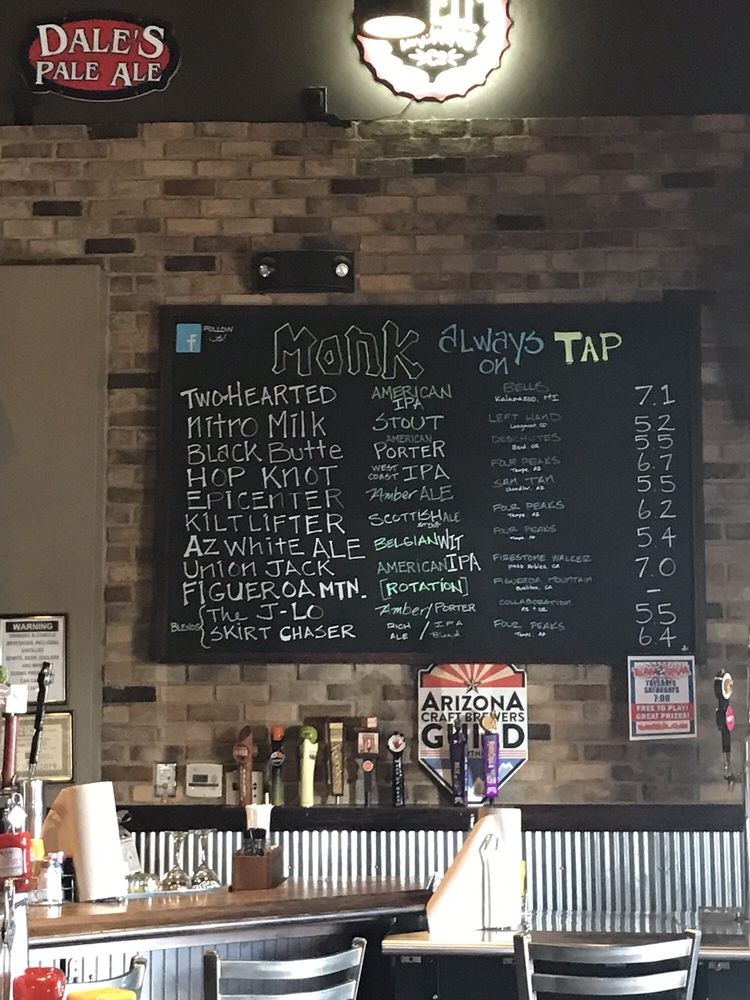 DALE'S
PALE ALE
FOLLOW
US!
MONK ALWAYS ON TAP
TWO-HEARTED AMERICAN IPA BELLS Kalamazoo, MI 7.1
NITRO MILK STOUT LEFT HAND Longmont, CO 5.2
BLACK BUTTE AMERICAN PORTER DESCHUTES Bend, OR 5.5
HOP KNOT WEST COAST IPA FOUR PEAKS Tempe, AZ 6.7
EPICENTER Amber ALE SAN TAN Chandler, AZ 5.5
KILTLIFTER SCOTTISH STYLE ALE FOUR PEAKS Tempe, AZ 6.2
AZ WHITE ALE BELGIAN WIT FOUR PEAKS 5.4
UNION JACK AMERICAN IPA FIRESTONE WALKER PASO Robles, CA 7.0
FIGUEROA MTN. [ROTATION] FIGUEROA MOUNTAIN Buellton, CA –
BLENDS { The J-LO Amber/PORTER COLLABORATION 5.5
SKIRT CHASER RICH ALE / IPA Blend FOUR PEAKS 6.4
WARNING
ARIZONA
CRAFT BREWERS
GUILD
TUESDAYS
SATURDAYS
7:00
FREE TO PLAY!
GREAT PRIZES!